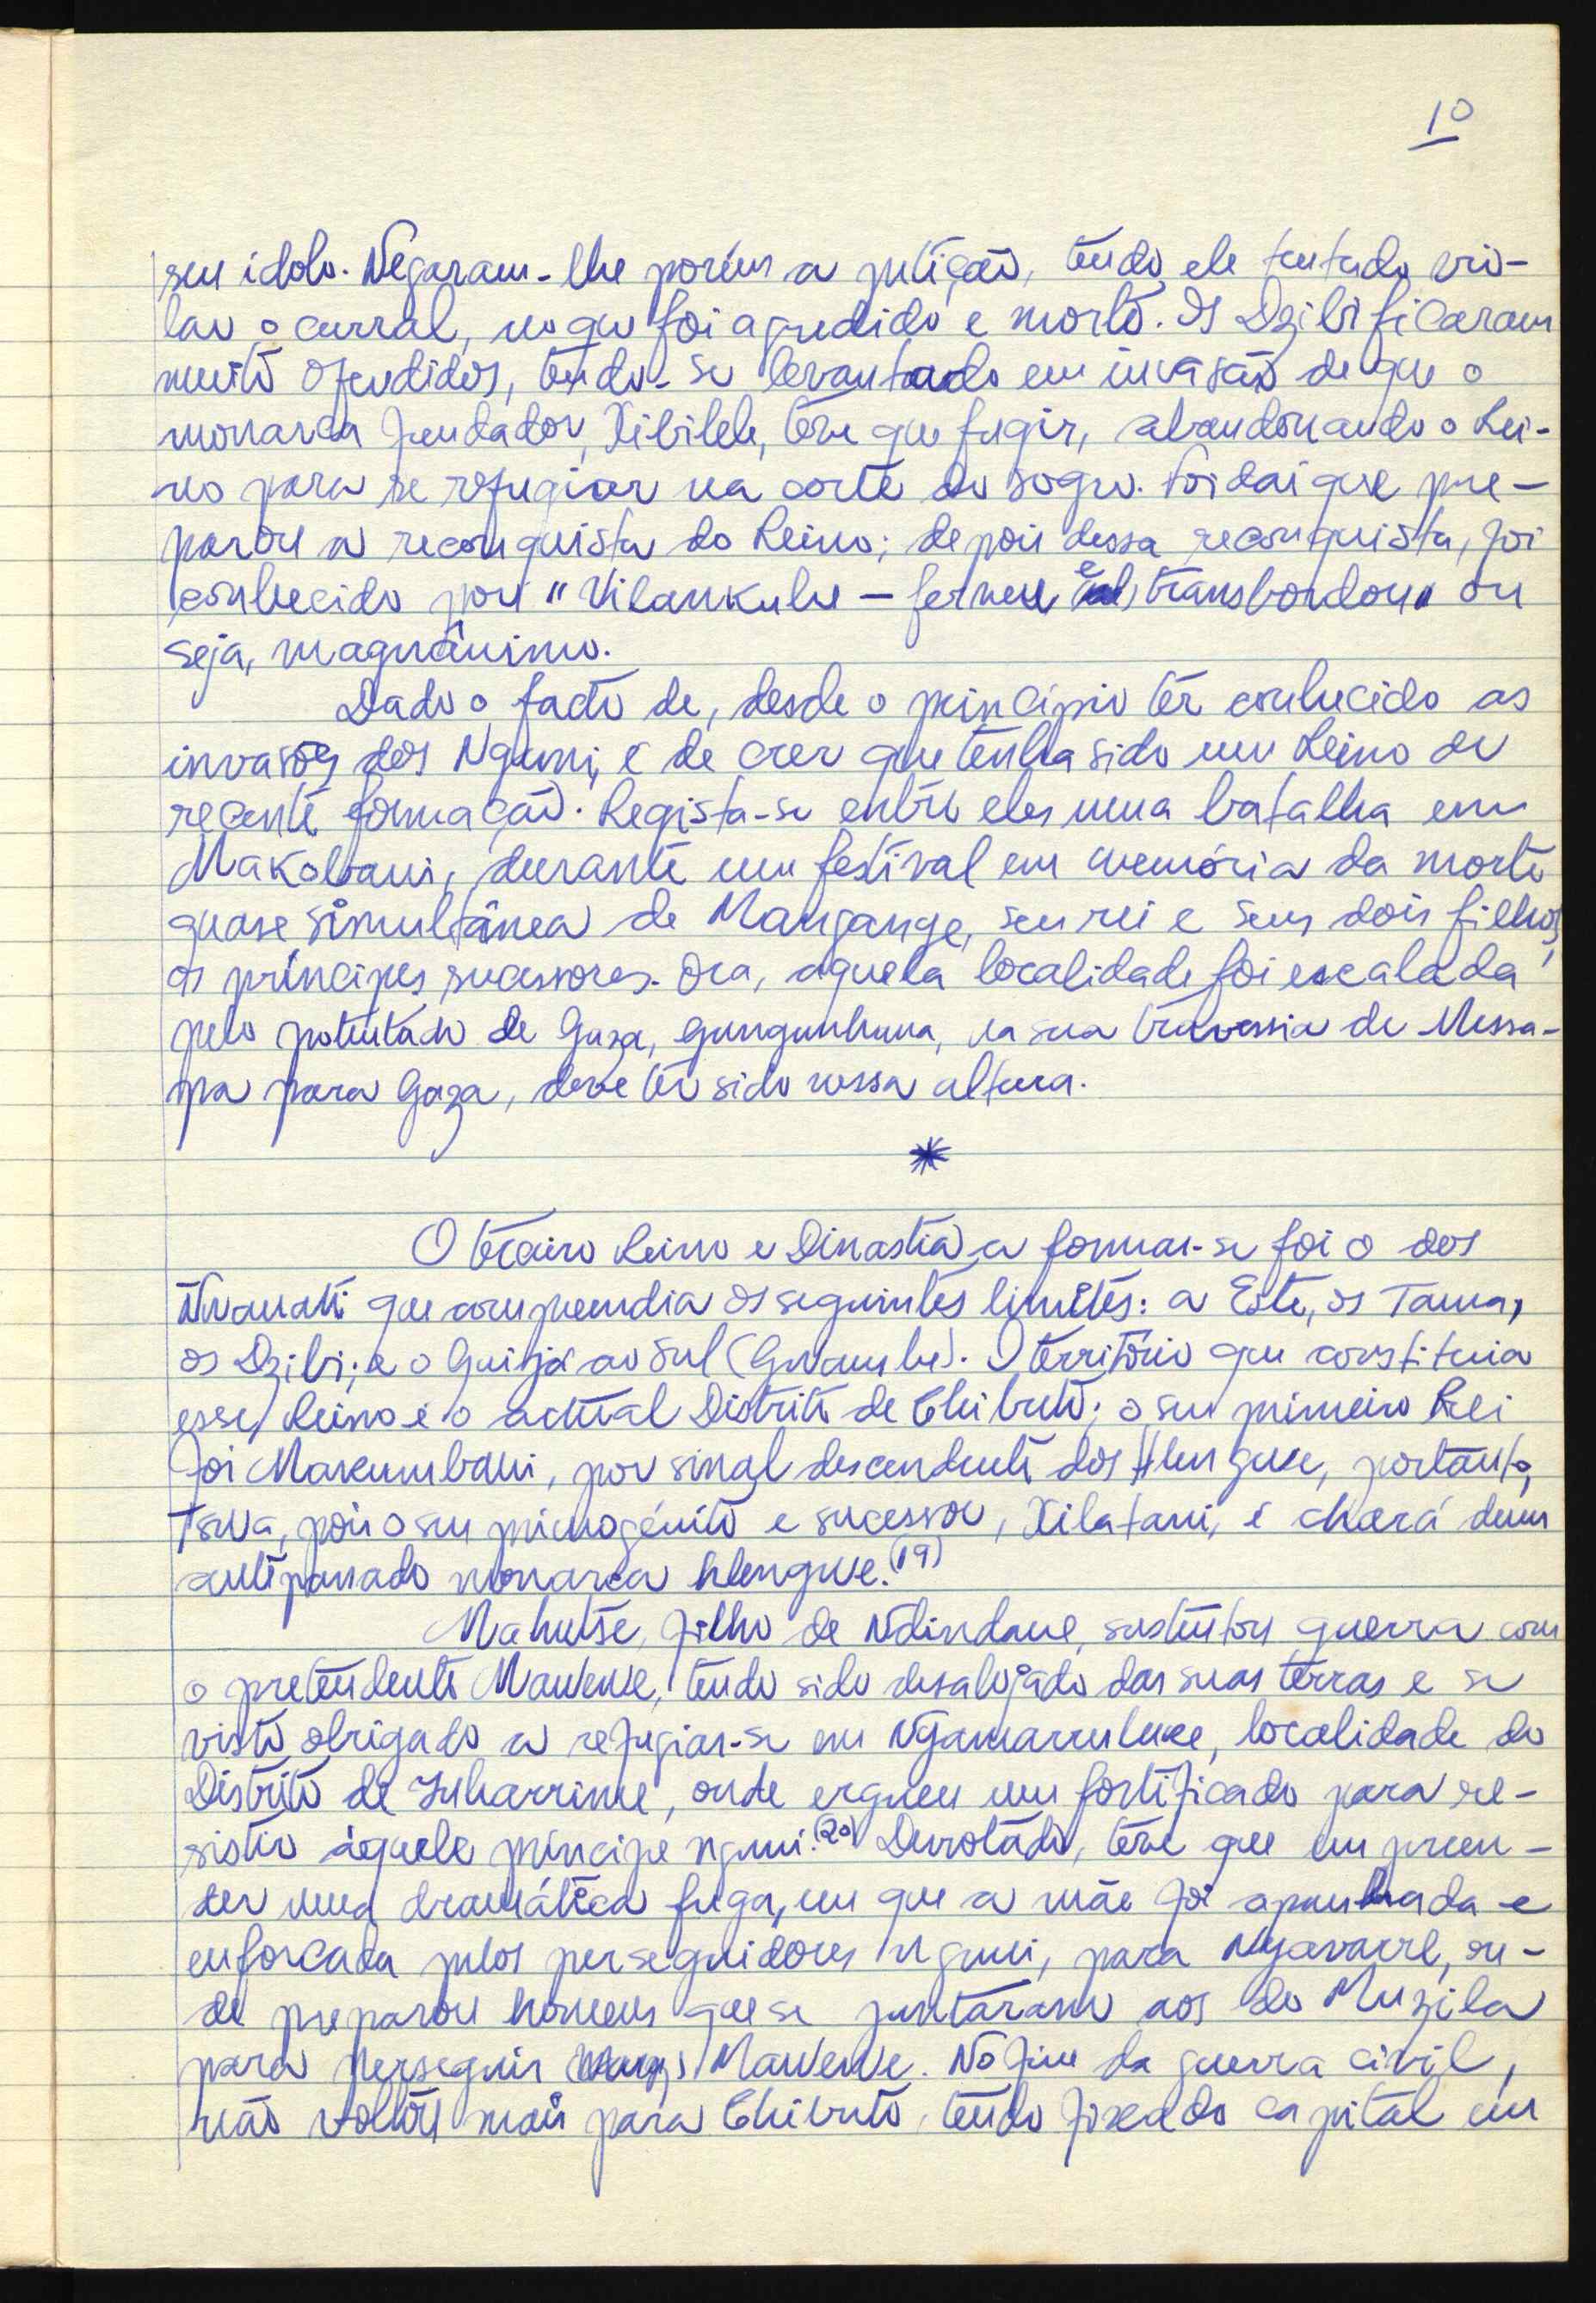 10
seu ídolo. Negaram-lhe porém a petição, tendo ele tentado vio-
lar o curral, no que foi agredido e morto. Os Dzibi ficaram
muito ofendidos, tendo-se levantado em invasão de que o
monarca fundador, Xibilele, teve que fugir, abandonando o Rei-
no para se refugiar na corte do sogro. Foi daí que pre-
parou a reconquista do Reino; depois dessa reconquista, foi
conhecido por "Vilankulu – ferveu e transbordou" ou
seja, magnânimo.
Dado o facto de, desde o princípio ter conhecido as
invasões dos Nguni, é de crer que tenha sido um Reino de
recente formação. Regista-se entre eles uma batalha em
Makolwani, durante um festival em memória da morte
quase simultânea de Mangange, seu rei e seus dois filhos,
os príncipes sucessores. Ora, aquela localidade foi escalada
pelo potentado de Gaza, Gungunhana, na sua travessia de Mossa-
pa para Gaza, deve ter sido nessa altura.
*
O terceiro Reino e Dinastia a formar-se foi o dos
Nwanati que compreendia os seguintes limites: a Este, os Tama,
os Dzibi; e o Guijá ao Sul (Gwambe). O território que constituia
esse Reino é o actual Distrito de Chibuto; o seu primeiro Rei
foi Makumbani, por sinal descendente dos Hlengwe, portanto,
Tswa, pois o seu primogénito e sucessor, Xilatani, é chará dum
antipassado monarca hlengwe.(19)
Mahutse, filho de Ndindane, sustentou guerra com
o pretendente Mawewe, tendo sido desalojado das suas terras e se
visto obrigado a refugiar-se em Nyamarruluke, localidade do
Distrito de Inharrime, onde ergueu um fortificado para re-
sistir àquele príncipe nguni.(20) Derrotado, teve que empreen-
der uma dramática fuga, em que a mãe foi apanhada e
enforcada pelos perseguidores nguni, para Nyavarre, on-
de preparou homens que se juntaram aos do Muzila
para perseguir Mawewe. No fim da guerra civil,
não voltou mais para Chibuto, tendo fixado capital em